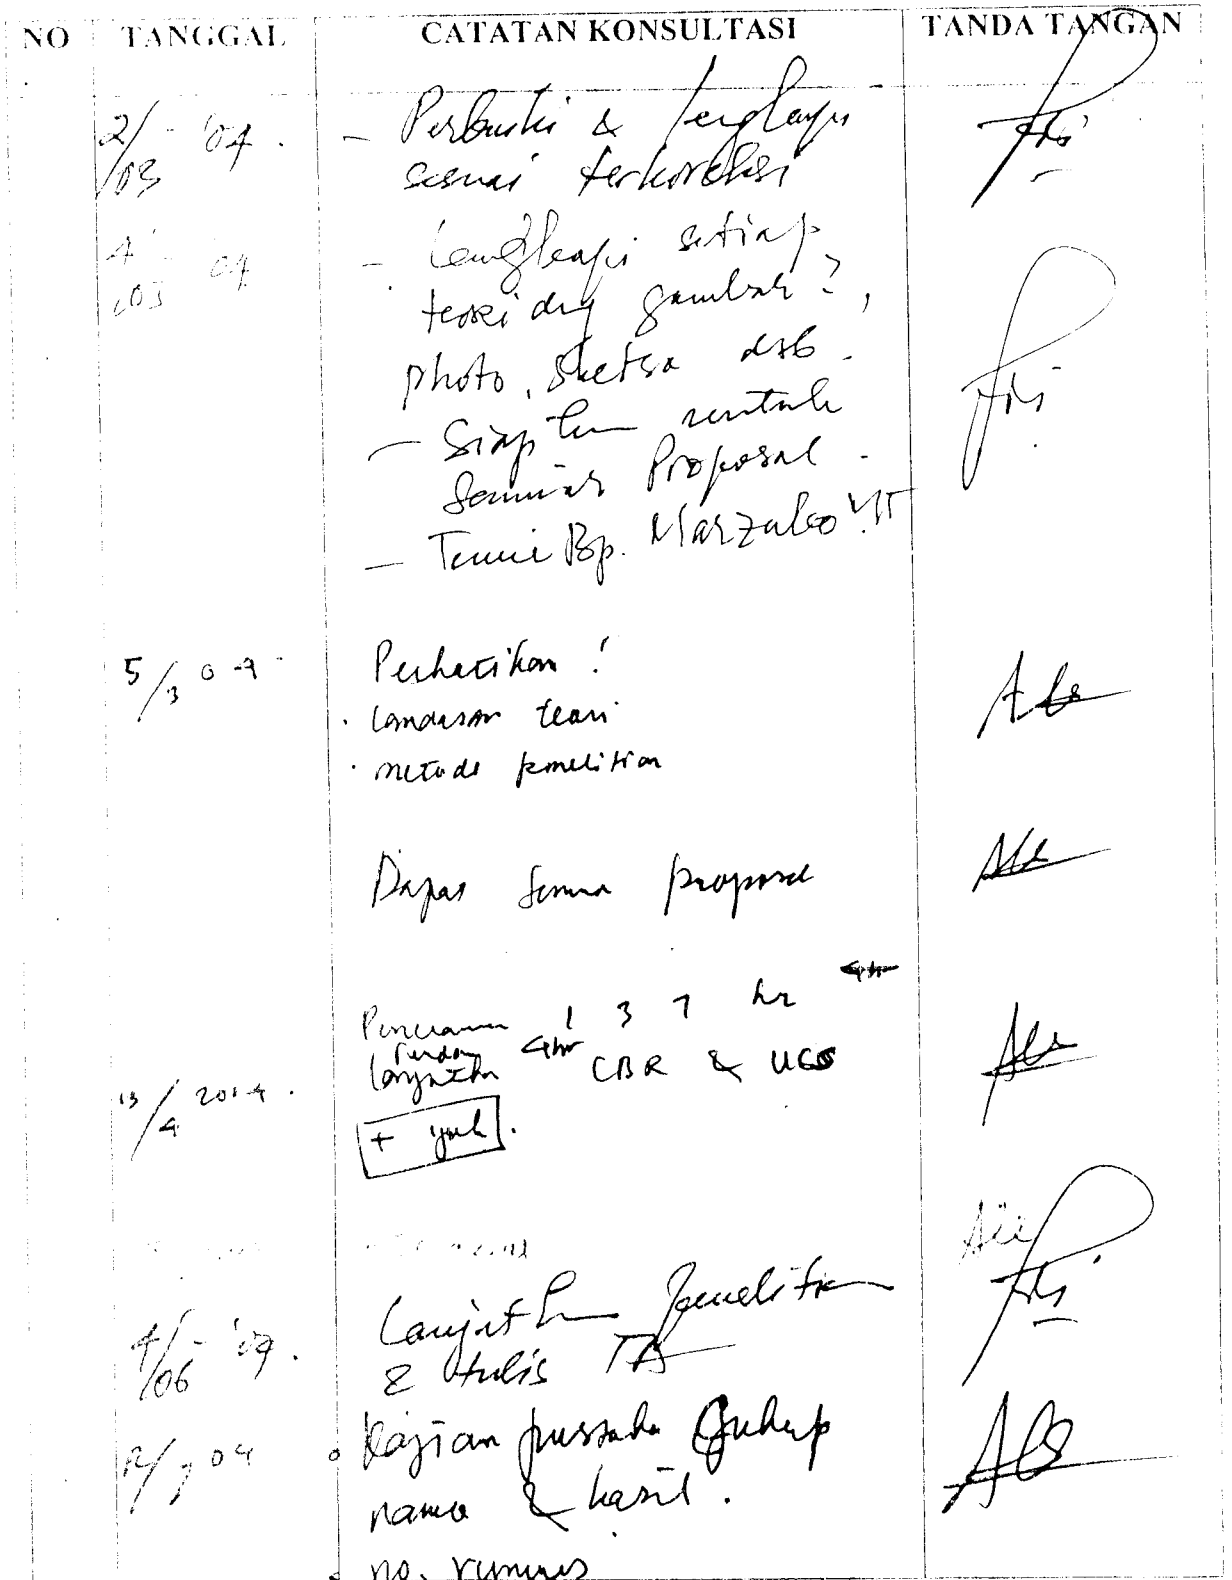 NO TANGGAL CATATAN KONSULTASI TANDA TANGAN
2/03 - '04. - Perbaiki & lengkapi
sesuai terkoreksi
4/03 - 04 - Lengkapi setiap
teori dng gambar2,
photo, sketsa dsb.
- Siapkan untuk
Seminar Proposal.
- Temui Bp. Marzuko MT
5/3 04 Perhatikan !
· landasan teori
· metode penelitian
Dapat proposal
1 3 7 hr
CBR & UCS
13/4 2004.
4/06 - '04. Lanjutkan penelitian
& tulis TA
12/7 04 Kajian pustaka cukup
nama & hasil.
no. rumus